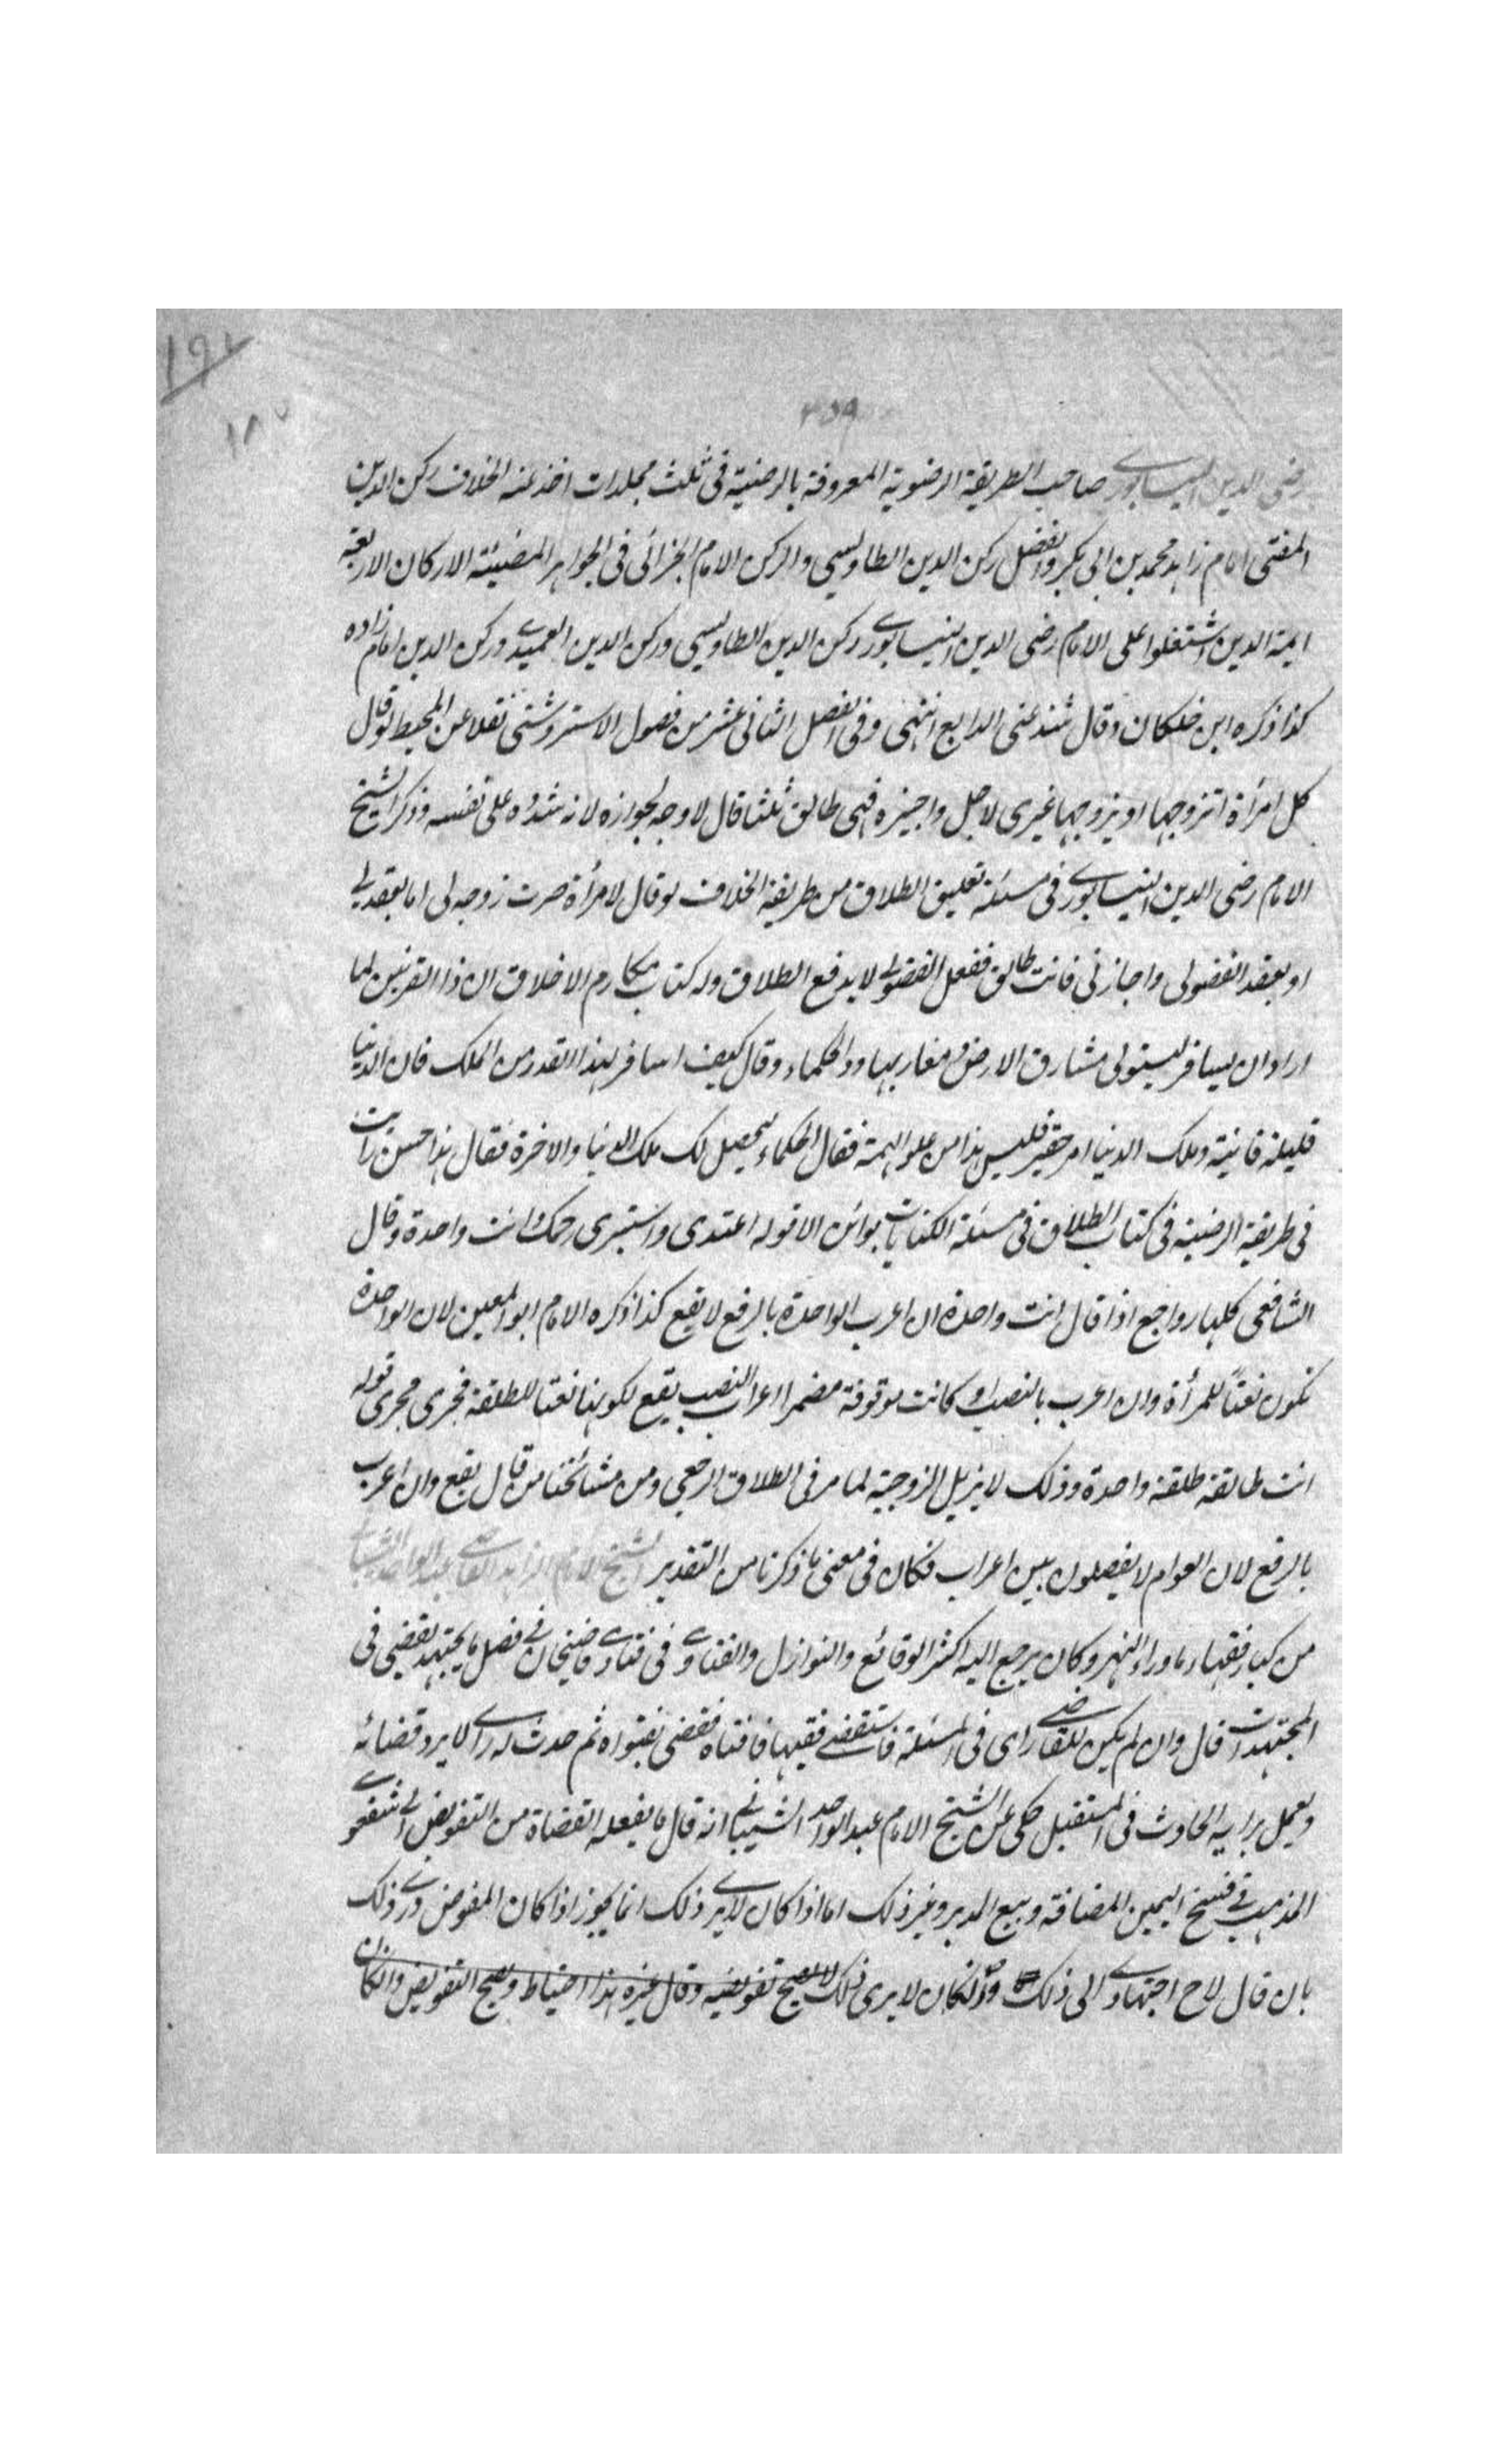 ١٩٢
٣٥٩
رضى الدين النيسابورى صاحب الطريقة الرضوية المعروفة بالرضية فى ثلث مجلدات اخذ عنه الخلاف ركن الدين
المفتى امام زاده محمد بن ابى بكر وافضل ركن الدين الطاوسى والركن الامام الخزائى فى الجواهر المضيئة الاركان الاربعة
ايمة الدين اشتغلوا على الامام رضى الدين النيسابورى ركن الدين الطاوسى وركن الدين العميدى وركن الدين امام زاده
كذا ذكره ابن خلكان وقال شذ عنى الرابع انتهى وفى الفصل الثانى عشر من فصول الاستروشنى نقلا عن المحيط لو قال
كل امرأة اتزوجها او يزوجها غيرى لاجل واجيزه فهى طالق ثلثا قال لا وجه لجوازه لانه شدد على نفسه وذكر الشيخ
الامام رضى الدين النيسابورى فى مسئلة تعليق الطلاق من طريقة الخلاف لو قال لامرأة صرت زوجه لى اما بعقدى
او بعقد الفضولى واجازتى فانت طالق ففعل الفضولى لا يدفع الطلاق وله كتاب مكارم الاخلاق ان ذا القرنين لما
اراد ان يسافر ليستولى مشارق الارض ومغاربها والحكماء وقال كيف اسافر لهذا القدر من الملك فان الدنيا
قليلة فانية وملك الدنيا امر حقير فليس هذا من علو الهمة فقال الحكماء ليحصل لك ملك الدنيا والاخرة فقال هذا حسن رأيت
فى طريقة الرضية فى كتاب الطلاق فى مسئلة الكنايات بوائن الا قوله اعتدى واستبرى رحمك وانت واحدة وقال
الشافعى كلها رواجع اذا قال انت واحدة ان اعرب الواحدة بالرفع لا يقع كذا ذكره الامام ابو المعين لان الواحدة
تكون نعتاً للمرأة وان اعرب بالنصب او كانت موقوفة مضمرا اعراب النصب يقع لكونها نعتا للطلقة فجرى مجرى قوله
انت طالقة طلقة واحدة وذلك لا يزيل الزوجية لما مر فى الطلاق الرجعى ومن مشائخنا من قال يقع وان اعرب
بالرفع لان العوام لا يفصلون بين اعراب فكان فى معنى ما ذكرنا من التقدير الشيخ الامام الزاهد القاضى عبد الواحد الشيبانى
من كبار فقهاء ما وراء النهر وكان يرجع اليه اكثر الوقائع والنوازل والفتاوى وفى فتاوى قاضيخان فى فصل ما يجتهد يقضى فى
المجتهدات قال وان لم يكن للقاضى راى فى المسئلة فاستقضى فقيها فافتاه فقضى بفتواه ثم حدث له راى لا يرد قضائه
ويعمل برايه الحادث فى المستقبل حكى عن الشيخ الامام عبد الواحد الشيبانى انه قال ما يفعله القضاة من التفويض الى شفعوى
المذهب فى فسخ اليمين المضافة وبيع المدبر وغير ذلك اما اذا كان لا يرى ذلك انما يجوز اذا كان المفوض يرى ذلك
بان قال لاح اجتهادى الى ذلك وان كان لا يرى ذلك لا يصح تفويضه وقال غيره هذا احتياط ويصح التفويض وان كان